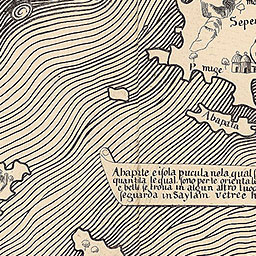 Seper
muge
Abapata
Abapite e isola pucula nela qual
quantita le qual sono per le orienta
e belle se trova in algun altro luog
seguirda in Saylam vetre h